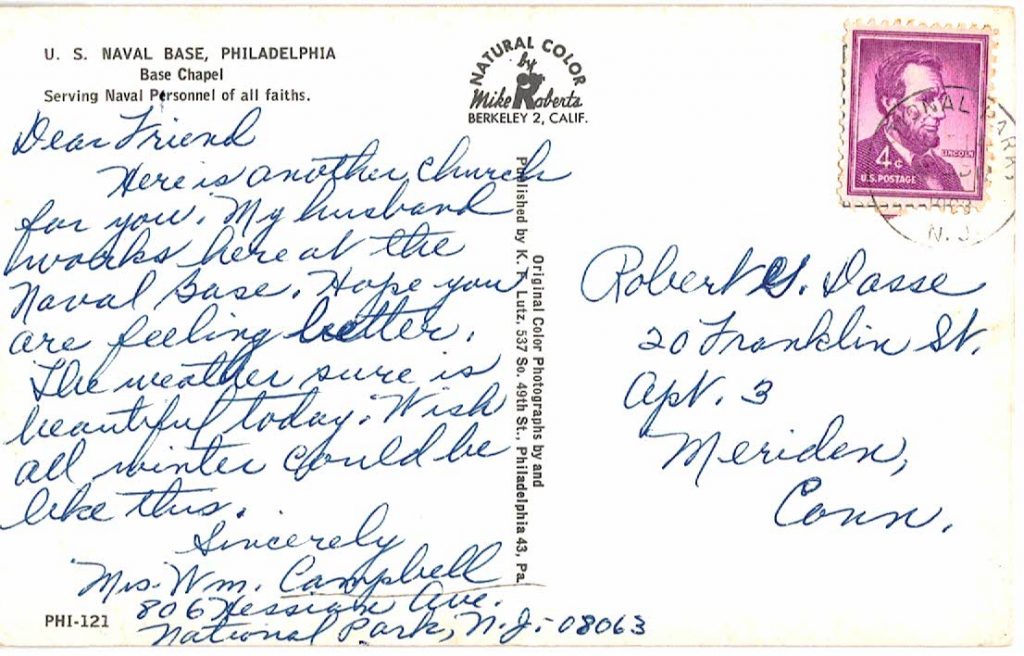 U. S. NAVAL BASE, PHILADELPHIA
Base Chapel
Serving Naval Personnel of all faiths.
NATURAL COLOR
by
Mike Roberts
BERKELEY 2, CALIF.
Dear Friend
Here is another church
for you. My husband
works here at the
Naval Base. Hope you
are feeling better.
The weather sure is
beautiful today. Wish
all winter could be
like this.
Sincerely
Mrs. Wm. Campbell
806 Hessian Ave.
National Park, N.J. 08063
PHI-121
Original Color Photographs by and
Published by K. F. Lutz, 537 So. 49th St., Philadelphia 43, Pa.
4¢
LINCOLN
U.S. POSTAGE
ONAL PARK
N. J.
Robert G. Dasse
20 Franklin St.
Apt. 3
Meriden,
Conn.